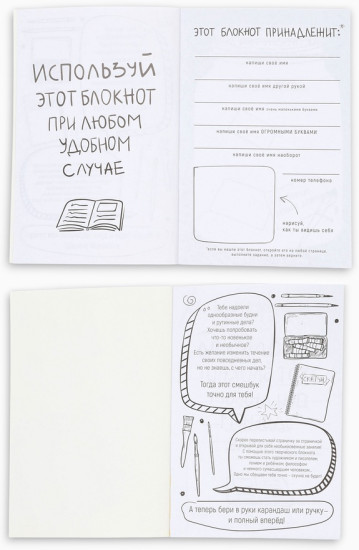 ИСПОЛЬЗУЙ
ЭТОТ БЛОКНОТ
ПРИ ЛЮБОМ
УДОБНОМ
СЛУЧАЕ
ЭТОТ БЛОКНОТ ПРИНАДЛЕЖИТ:*
напиши своё имя
напиши своё имя другой рукой
напиши своё имя
напиши своё имя ОГРОМНЫМИ БУКВАМИ
напиши своё имя наоборот
номер телефона
нарисуй,
как ты видишь себя
Тебе надоели
однообразные будни
и рутинные дела?
Хочешь попробовать
что-то новенькое
и необычное?
Есть желание изменить течение
своих повседневных дел,
но не знаешь, с чего начать?
Тогда этот смешбук
точно для тебя!
СКЕТЧИ
А теперь бери в руки карандаш или ручку–
и полный вперёд!